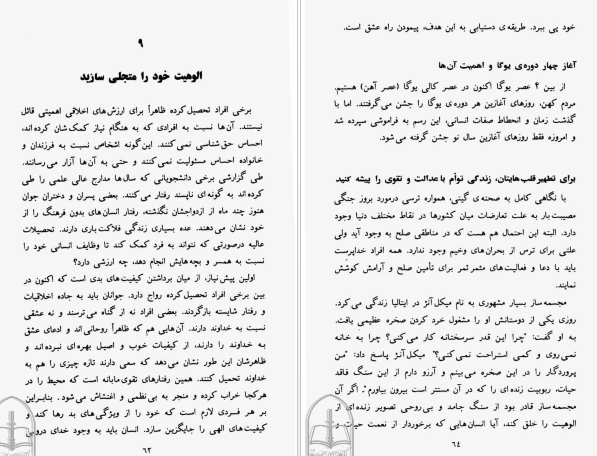 خود پی ببرد. طریقه‌ی دستیابی به این هدف، پیمودن راه عشق است.
آغاز چهار دوره‌ی یوگا و اهمیت آن‌ها
از بین ۴ عصر یوگا اکنون در عصر کالی یوگا (عصر آهن) هستیم.
مردم کهن، روزهای آغازین هر دوره‌ی یوگا را جشن می‌گرفتند. اما با
گذشت زمان و انحطاط صفات انسانی، این رسم به فراموشی سپرده شد
و امروزه فقط روزهای آغازین سال نو جشن گرفته می‌شود.
برای تطهیر قلب‌هایتان، زندگی توأم با عدالت و تقوی را پیشه کنید
با نگاهی کامل به صحنه‌ی گیتی، همواره ترسی درمورد بروز جنگی
مصیبت‌بار به علت تعارضات میان کشورها در نقاط مختلف دنیا وجود
دارد. البته این احتمال هم هست که در مناطقی صلح به وجود آید ولی
علتی برای ترس از بحران‌های وخیم وجود ندارد. همه افراد خداپرست
باید با دعا و فعالیت‌های مثمر ثمر برای تأمین صلح و آرامش کوشش
نمایند.
مجسمه‌ساز بسیار مشهوری به نام میکل‌آنژ در ایتالیا زندگی می‌کرد.
روزی یکی از دوستانش او را مشغول خرد کردن صخره عظیمی یافت.
به او گفت: "چرا این قدر سرسختانه کار می‌کنی؟ چرا به خانه
نمی‌روی و کمی استراحت نمی‌کنی؟" میکل‌آنژ پاسخ داد: "من
پروردگار را در این صخره می‌بینم و آرزو دارم از این سنگ فاقد
حیات، ربوبیت زنده‌ای را که در آن مستتر است بیرون بیاورم". اگر آن
مجسمه‌ساز قادر بود از سنگ جامد و بی‌روحی تصویر زنده‌ای از
الوهیت را خلق کند، آیا انسان‌هایی که برخوردار از نعمت حیات و
۶۴
۹
الوهیت خود را متجلی سازید
برخی افراد تحصیل‌کرده ظاهراً برای ارزش‌های اخلاقی اهمیتی قائل
نیستند. آن‌ها نسبت به افرادی که به هنگام نیاز کمک‌شان کرده‌اند،
احساس حق‌شناسی نمی‌کنند. این‌گونه اشخاص نسبت به فرزندان و
خانواده احساس مسئولیت نمی‌کنند و حتی به آن‌ها آزار می‌رسانند.
طی گزارشی برخی دانشجویانی که سال‌ها مدارج عالی علمی را طی
کرده‌اند به گونه‌ای ناپسند رفتار می‌کنند. بعضی پسران و دختران جوان
هنوز چند ماه از ازدواجشان نگذشته، رفتار انسان‌های بدون فرهنگ را از
خود نشان می‌دهند. عده بسیاری زندگی فلاکت‌باری دارند. تحصیلات
عالیه درصورتی که نتواند به فرد کمک کند تا وظایف انسانی خود را
نسبت به همسر و بچه‌هایش انجام دهد، چه ارزشی دارد؟
اولین پیش‌نیاز، از میان برداشتن کیفیت‌های بدی است که اکنون در
بین برخی افراد تحصیل‌کرده رواج دارد. جوانان باید به جاده اخلاقیات
و رفتار شایسته بازگردند. بعضی افراد نه از گناه می‌ترسند و نه عشقی
نسبت به خداوند دارند. آن‌هایی هم که ظاهراً روحانی‌اند و ادعای عشق
به خداوند را دارند، از کیفیات خوب و اصیل بهره‌ای نبرده‌اند و
ظاهرشان این طور نشان می‌دهد که سعی دارند تازه چیزی را هم به
خداوند تحمیل کنند. همین رفتارهای تقوی‌مابانه است که محیط را در
هرکجا خراب کرده و منجر به بی‌نظمی و اغتشاش می‌شود. بنابراین
بر هر فردی لازم است که خود را از ویژگی‌های بد رها کند و
کیفیت‌های الهی را جایگزین سازد. انسان باید به وجود خدای درونی
۶۳